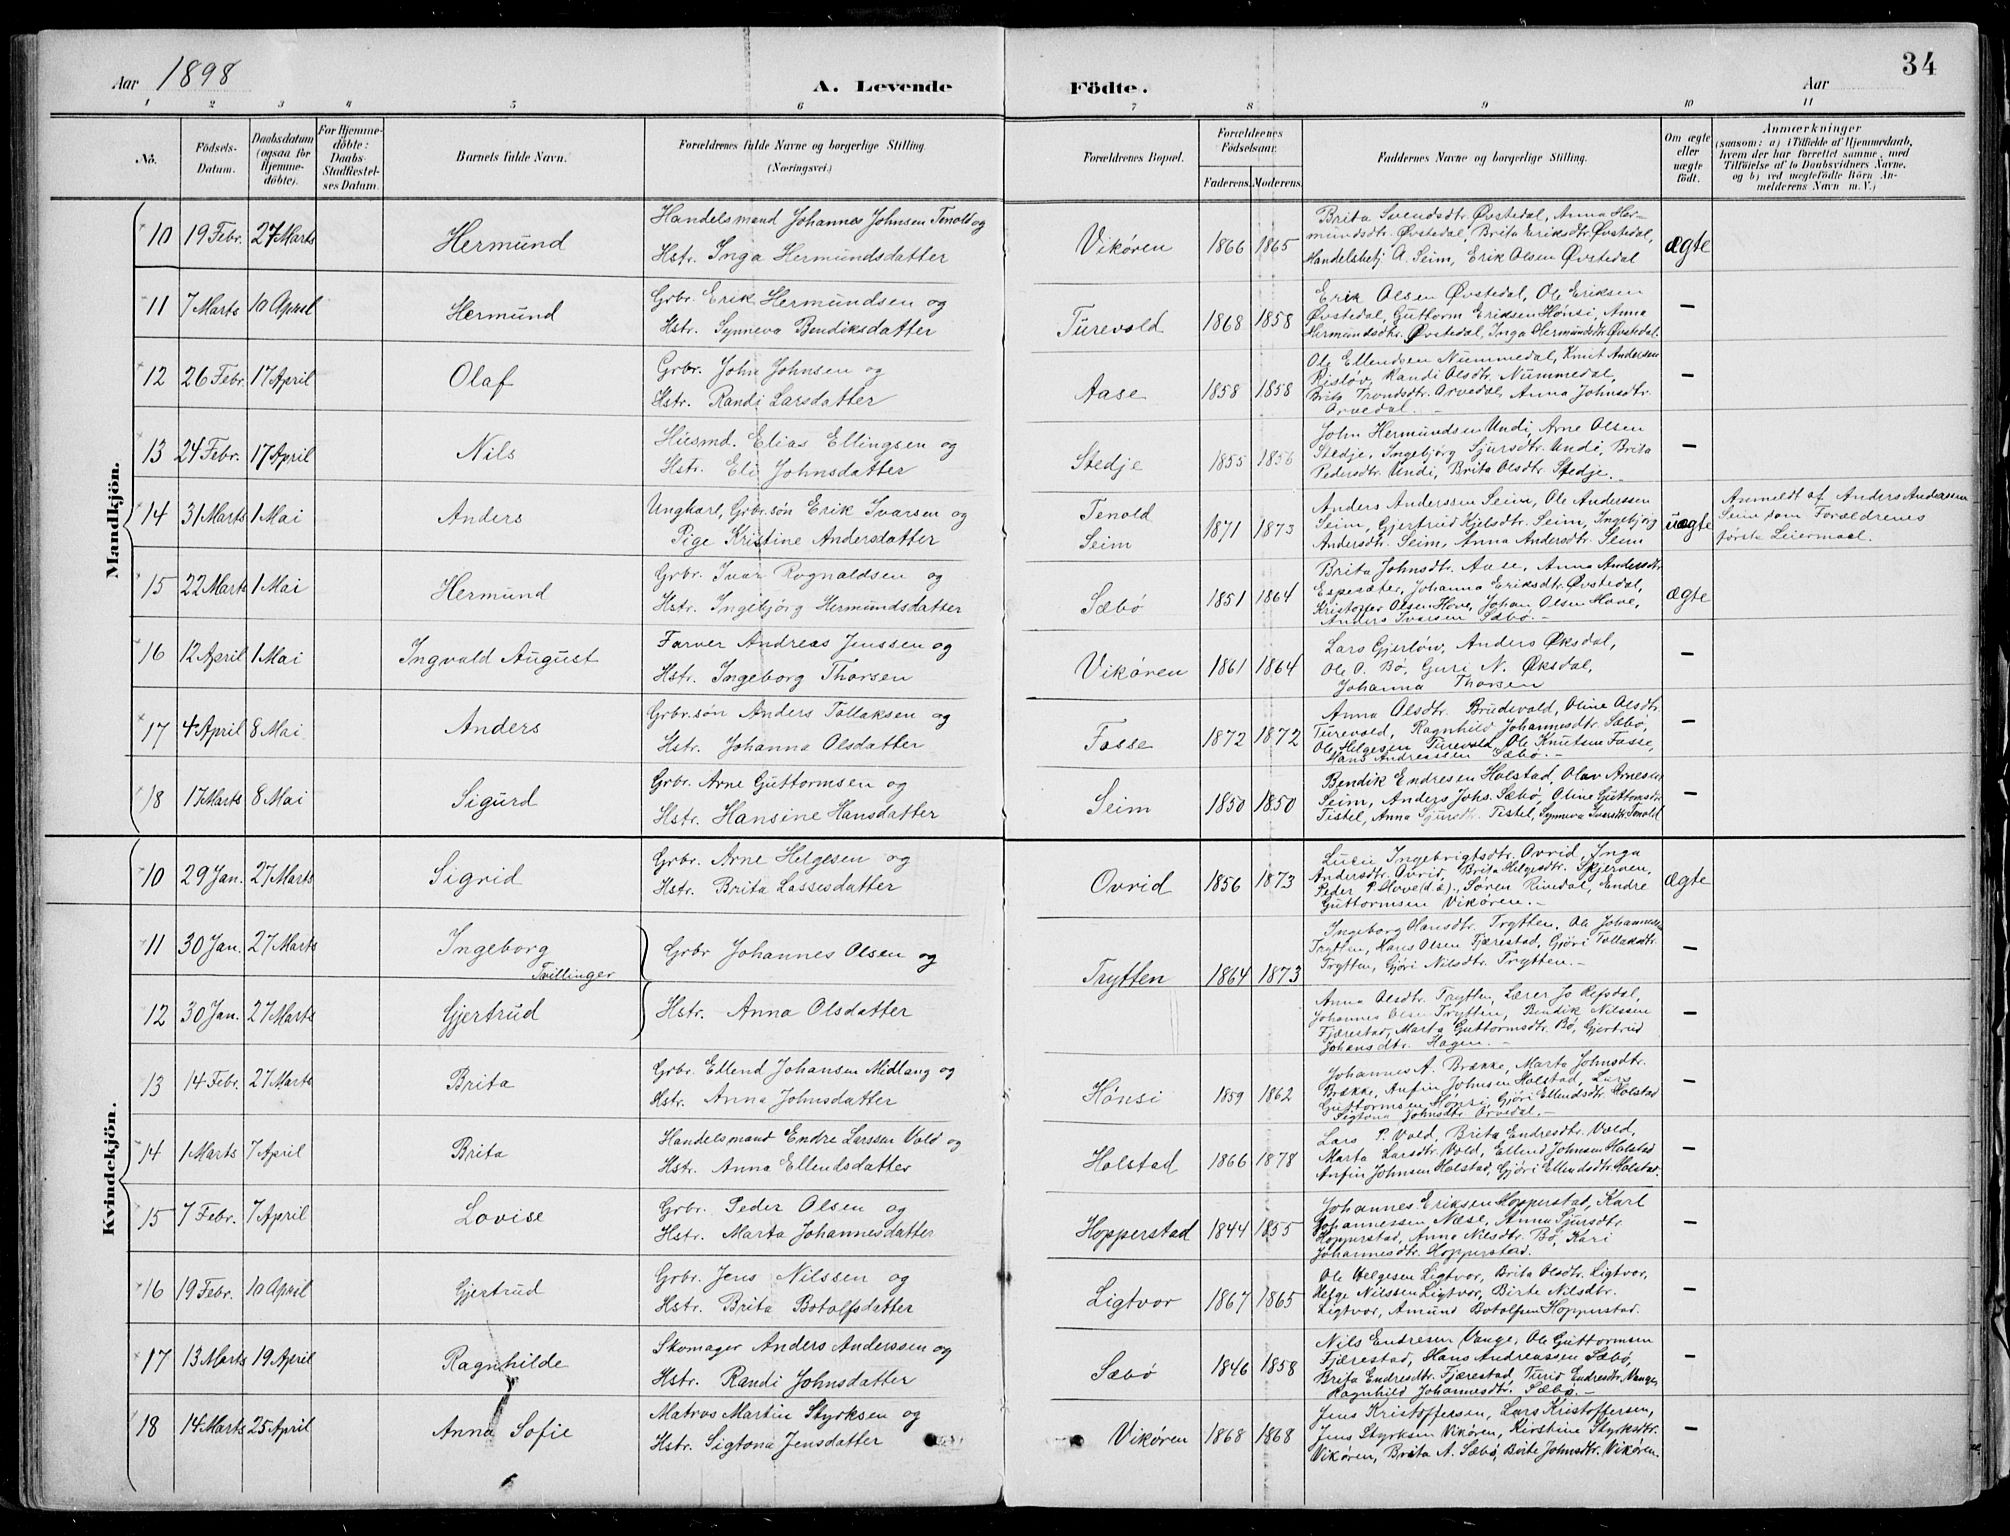 Aar 1898
A. Levende Födte.
Aar
34
1 2 3 4 5 6 7 8 9 10 11
No.
Födsels-Datum.
Daabsdatum (ogsaa for Hjemme-döbte).
For Hjemme-döbte: Daabs-Stadfæstel-ses Datum.
Barnets fulde Navn.
Forældrenes fulde Navne og borgerlige Stilling. (Næringsvei.)
Forældrenes Bopæl.
Forældrenes Födselsaar.
Faderens. Moderens.
Faddernes Navne og borgerlige Stilling.
Om ægte eller uægte födt.
Anmærkninger
(saasom: a) i Tilfælde af Hjemmedaab,
hvem der har forrettet samme, med
Tilföielse af to Daabsvidners Navne,
og b) ved uægtefödte Börn An-
melderens Navn m. V.)
Mandkjön.
10 19 Febr. 27 Marts Hermund
Handelsmand Johannes Johnsen Tenold og
Hstr. Inga Hermundsdatter
Vikøren 1866 1865
Brita Svendsdtr. Øvstedal, Anna Her-
mundsdtr. Øvstedal, Brita Eriksdtr. Øvstedal,
Handelsbetj. A. Seim, Erik Olsen Øvstedal
ægte
11 7 Marts 10 April Hermund
Grbr. Erik Hermundsen og
Hstr. Synneva Bendiksdatter
Turevold 1868 1858
Erik Olsen Øvstedal, Ole Eriksen
Øvstedal, Guttorm Eriksen Hønsi, Anna
Hermundsdtr. Øvstedal, Inga Hermundsdtr. Øvstedal.
–
12 26 Febr. 17 April Olaf
Grbr. John Johnsen og
Hstr. Randi Larsdatter
Aase 1858 1858
Ole Ellendsen Nummedal, Knut Andersen
Risløv, Randi Olsdtr. Nummedal,
Brita Trondsdtr. Arvedal, Anna Johnsdtr.
Arvedal. –
–
13 24 Febr. 17 April Nils
Husmd. Elias Ellingsen og
Hstr. Eli Johnsdatter
Stedje 1855 1856
John Hermundsen Undi, Arne Olsen
Stedje, Ingebjørg Sjursdtr. Undi, Brita
Pedersdtr. Undi, Brita Olsdtr. Stedje.
–
14 31 Marts 1 Mai Anders
Ungkarl, Grbr.søn Erik Ivarsen og
Pige Kristine Andersdatter
Tenold
Seim
1871 1873
Anders Anderssen Seim, Ole Anderssen
Seim, Gjertrud Kjelsdtr. Seim, Ingebjørg
Andersdtr. Seim, Anna Andersdtr. Seim
uægte
Anmeldt af Anders Andersen
Seim som Forældrenes
første Leiermaal.
15 22 Marts 1 Mai Hermund
Grbr. Ivar Rognaldsen og
Hstr. Ingebjörg Hermundsdatter
Sæbö 1851 1864
Brita Johnsdtr. Aase, Anna Andersdtr.
Espesæter, Johanna Eriksdtr. Øvstedal,
Kristoffer Olsen Hove, Johan Olsen Hove,
Anders Ivarsen Sæbø. –
ægte
16 12 April 1 Mai Ingvald August
Farver Andreas Jenssen og
Hstr. Ingeborg Thorsen
Vikøren 1861 1864
Lars Gjerløw, Anders Øksdal,
Ole O. Bø, Guri N. Øksdal,
Johanna Thorsen
–
17 4 April 8 Mai Anders
Grbr.søn Anders Tollaksen og
Hstr. Johanna Olsdatter
Fosse 1872 1872
Anna Olsdtr. Brudevold, Oline Olsdtr.
Turevold, Ragnhild Johannesdtr. Sæbö,
Ole Helgesen Turevold, Ole Knutsen Fosse,
Hans Andreassen Sæbø. –
–
18 17 Marts 8 Mai Sigurd
Grbr. Arne Guttormsen og
Hstr. Hansine Hansdatter
Seim 1850 1850
Bendik Endresen Holstad, Olav Arnesen
Seim, Anders Johs. Sæbö, Oline Guttormsdtr.
Tistel, Anna Sjursdtr. Tistel, Synneva Ivarsdtr. Tenold
–
Kvindekjön.
10 29 Jan. 27 Marts Sigrid
Grbr. Arne Helgesen og
Hstr. Brita Lassesdatter
Ovrid 1856 1873
Lucie Ingebrigtsdtr. Ovrid, Inga
Andersdtr. Ovrid, Brita Helgesdtr. Skjerven,
Peder P. Hove (d.æ.), Søren Rivedal, Endre
Guttormsen Vikøren. –
ægte
11 30 Jan. 27 Marts Ingeborg
Tvillinger
Grbr Johannes Olsen og
Trytten 1864 1873
Ingeborg Hansdtr. Trytten, Ole Johannesen
Trytten, Hans Olsen Fjærestad, Gjöri Tollaksdtr.
Trytten, Gjöri Nilsdtr. Trytten. –
–
12 30 Jan. 27 Marts Gjertrud
Hstr. Anna Olsdatter
Anna Olsdtr. Trytten, Lærer Jo Refsdal,
Johannes Olsen Trytten, Bendik Nilssen
Fjærestad, Marta Guttormsdtr. Bö, Gjertrud
Johansdtr. Hagen. –
–
13 14 Febr. 27 Marts Brita
Grbr. Ellend Johansen Midlang og
Hstr. Anna Johnsdatter
Hönsi 1859 1862
Johannes A. Brække, Marta Johnsdtr.
Brække, Anfin Johnsen Holstad, Lars
Guttormsen Hönsi, Gjöri Ellendsdtr. Holstad
Sigtona Johnsdtr. Arvedal. –
–
14 1 Marts 7 April Brita
Handelsmand Endre Larssen Vold og
Hstr. Anna Ellendsdatter
Holstad 1866 1878
Lars P. Vold, Brita Endresdtr. Vold,
Marta Larsdtr. Vold, Ellend Johnsen Holstad
Anfin Johnsen Holstad, Gjöri Ellendsdtr. Holstad.
–
15 7 Febr. 7 April Lovise
Grbr. Peder Olsen og
Hstr. Marta Johannesdatter
Hopperstad 1844 1855
Johannes Eriksen Hopperstad, Karl
Johannessen Næse, Anna Sjursdtr.
Hopperstad, Anna Nilsdtr. Bö, Kari
Johannesdtr. Hopperstad.
–
16 19 Febr. 10 April Gjertrud
Grbr. Jens Nilssen og
Hstr. Brita Botolfsdatter
Ligtvor 1867 1865
Ole Helgesen Ligtvor, Brita Olsdtr. Ligtvor,
Helge Nilssen Ligtvor, Birte Nilsdtr.
Ligtvor, Amund Botolfsen Hopperstad.
–
17 13 Marts 19 April Ragnhilde
Skomager Anders Anderssen og
Hstr. Randi Johnsdatter
Sæbö 1846 1858
Nils Endresen Vange, Ole Guttormsen
Fjærestad, Hans Andreassen Sæbö,
Brita Endresdtr. Fjærestad, Turid Endresdtr. Vange,
Ragnhild Johannesdtr. Sæbø –
–
18 14 Marts 25 April Anna Sofie
Matros Martin Styrksen og
Hstr. Sigtona Jensdatter
Vikøren 1868 1868
Jens Kristoffersen, Lars Kristoffersen,
Jens Styrksen Vikøren, Kirstine Styrksdtr.
Vikøren, Brita A. Sæbö, Birte Johnsdtr. Vikøren.
–